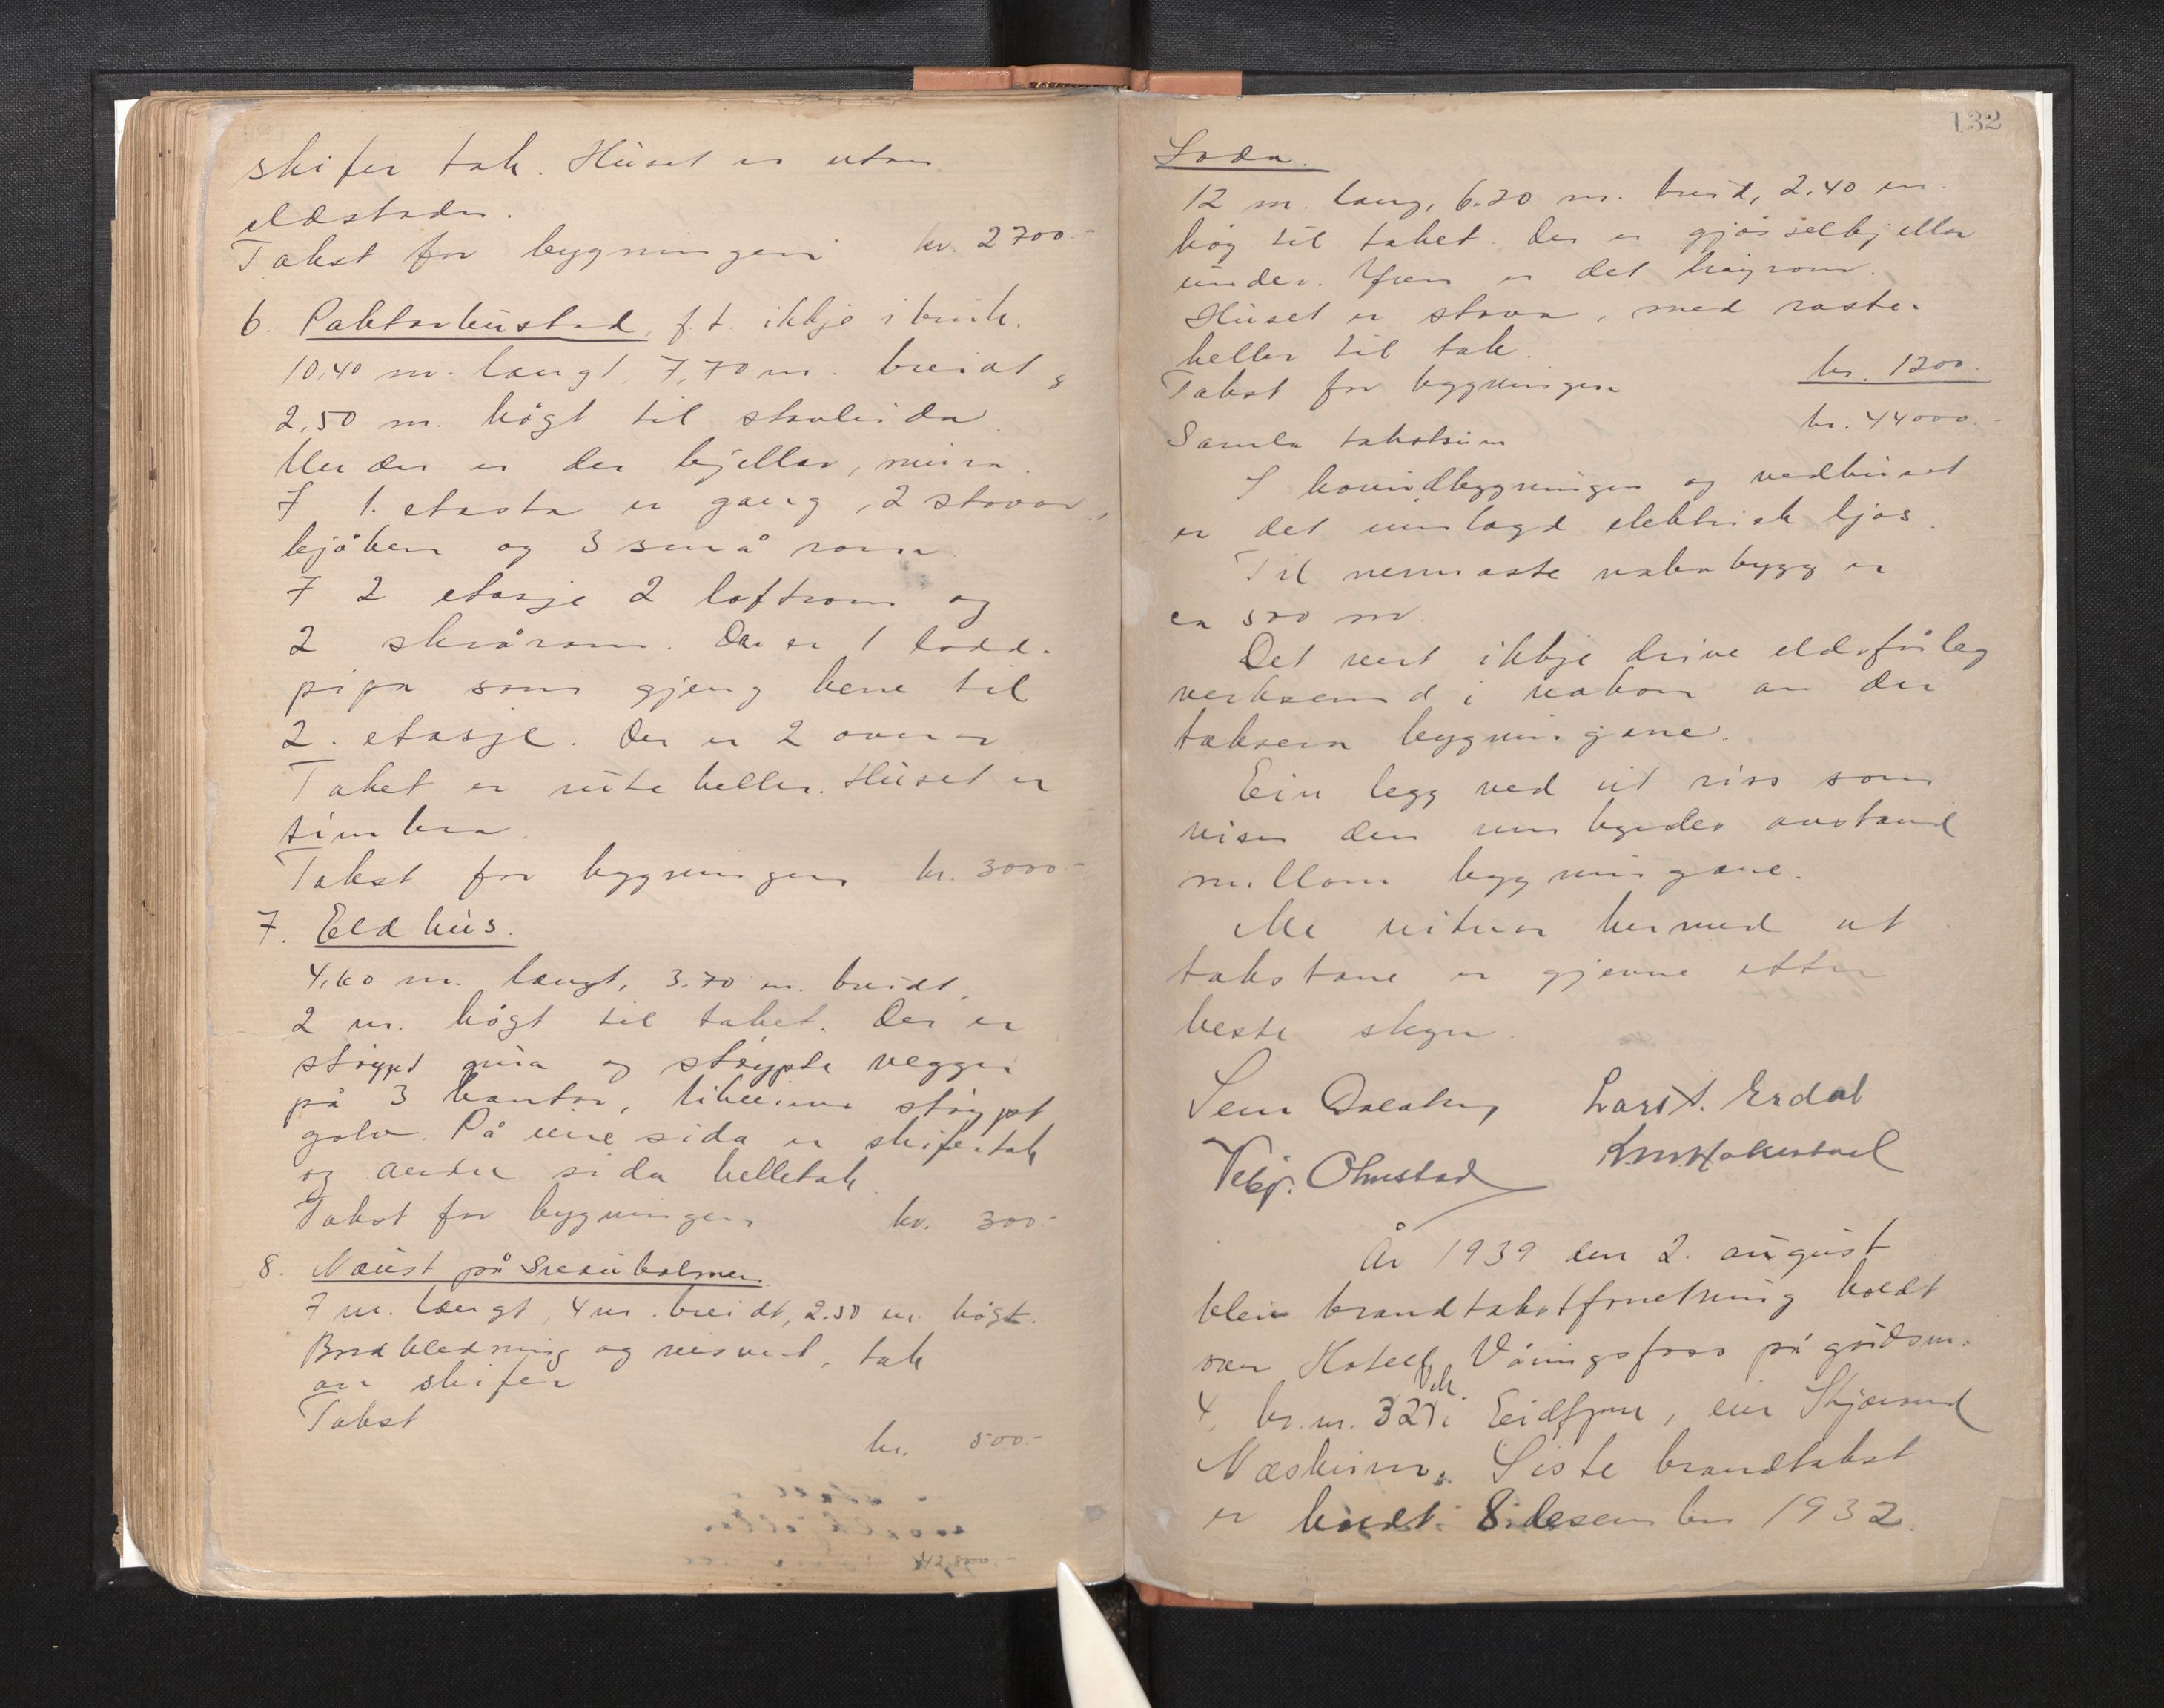 skifer tak. Huset er utan
eldstader.
Takst for bygningen kr. 2700.-
6. Paktarbustad, f.t. ikkje i bruk.
10,40 m. langt, 7,70 m. breidt,
2,50 m. högt til
Under er der kjellar, mura.
I 1. etasta er gang, 2 stovor,
kjöken og 3 små rom
I 2 etasje 2 loftrom og
2 skrårom. Der er 1 lodd-
pipa som gjeng bene til
2. etasje. Der er 2 ovnar
Taket er ruteheller. Huset er
timbra
Takst for bygningen kr. 3000.-
7. Eldhus.
4,60 m. langt, 3.70 m. breidt,
2 m. högt til taket. Der er
stöypt mura og stöypte vegger
på 3 kantar, likeeins stöypt
golv. På eine sida er skifertak
og andre sida helletak
Takst for bygningen kr. 300.-
8. Naust på
7 m. langt, 4 m. breidt, 2.50 m. högt.
Bordkledning og reisverk, tak
av skifer
Takst
kr. 500.-
42,800.-
132
Löda.
12 m. lang, 6.20 m. breid, 2,40 m.
høg til taket. Der er gjödselkjellar
under. Yver er det höyrom.
Huset er stava, med raste-
heller til tak.
Takst for bygningen kr. 1200.
Samla takstsum kr. 44000.-
I hovudbygningen og vedhuset
er det innlagd elektrisk ljos.
Til nermaste nabobygg er
ca 500 m.
Det vert ikkje drive eldsfårleg
verksemd i nabom av dei
taksera bygningane.
Ein legg ved eit riss som
viser den innbyrdes avstand
millom bygningane.
Me vitnar hermed at
takstane er gjevne etter
beste skyn.
Lars A. Erdal
Ohmstad
År 1939 den 2. august
blev brandtakstforretning holdt
over Hotell Vöringsfoss på gårdsnr.
4, br.nr. 32 i Eidfjord, eier
Næsheim. Siste brandtakst
er holdt 8 desember 1932.